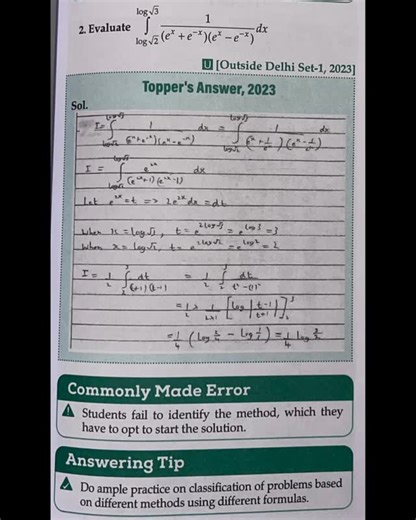 2. Evaluate ∫_{log√2}^{log√3} 1/((e^x + e^{-x})(e^x − e^{-x})) dx
U [Outside Delhi Set-1, 2023]
Topper's Answer, 2023
Sol.
I = ∫_{log√2}^{log√3} 1/((e^x + e^{-x})(e^x − e^{-x})) dx = ∫_{log√2}^{log√3} 1/((e^x + 1/e^x)(e^x − 1/e^x)) dx
I = ∫_{log√2}^{log√3} e^{2x}/((e^{2x}+1)(e^{2x}−1)) dx
Let e^{2x} = t => 2e^{2x} dx = dt
When x = log√3, t = e^{2log√3} = e^{log3} = 3
When x = log√2, t = e^{2log√2} = e^{log2} = 2
I = 1/2 ∫_2^3 dt/((t+1)(t−1)) = 1/2 ∫_2^3 dt/(t²−(1)²)
= 1/2 × 1/(2×1) [log |(t−1)/(t+1)|]_2^3
= 1/4 (log 2/4 − log 1/3) = 1/4 log 3/2
Commonly Made Error
Students fail to identify the method, which they
have to opt to start the solution.
Answering Tip
Do ample practice on classification of problems based
on different methods using different formulas.